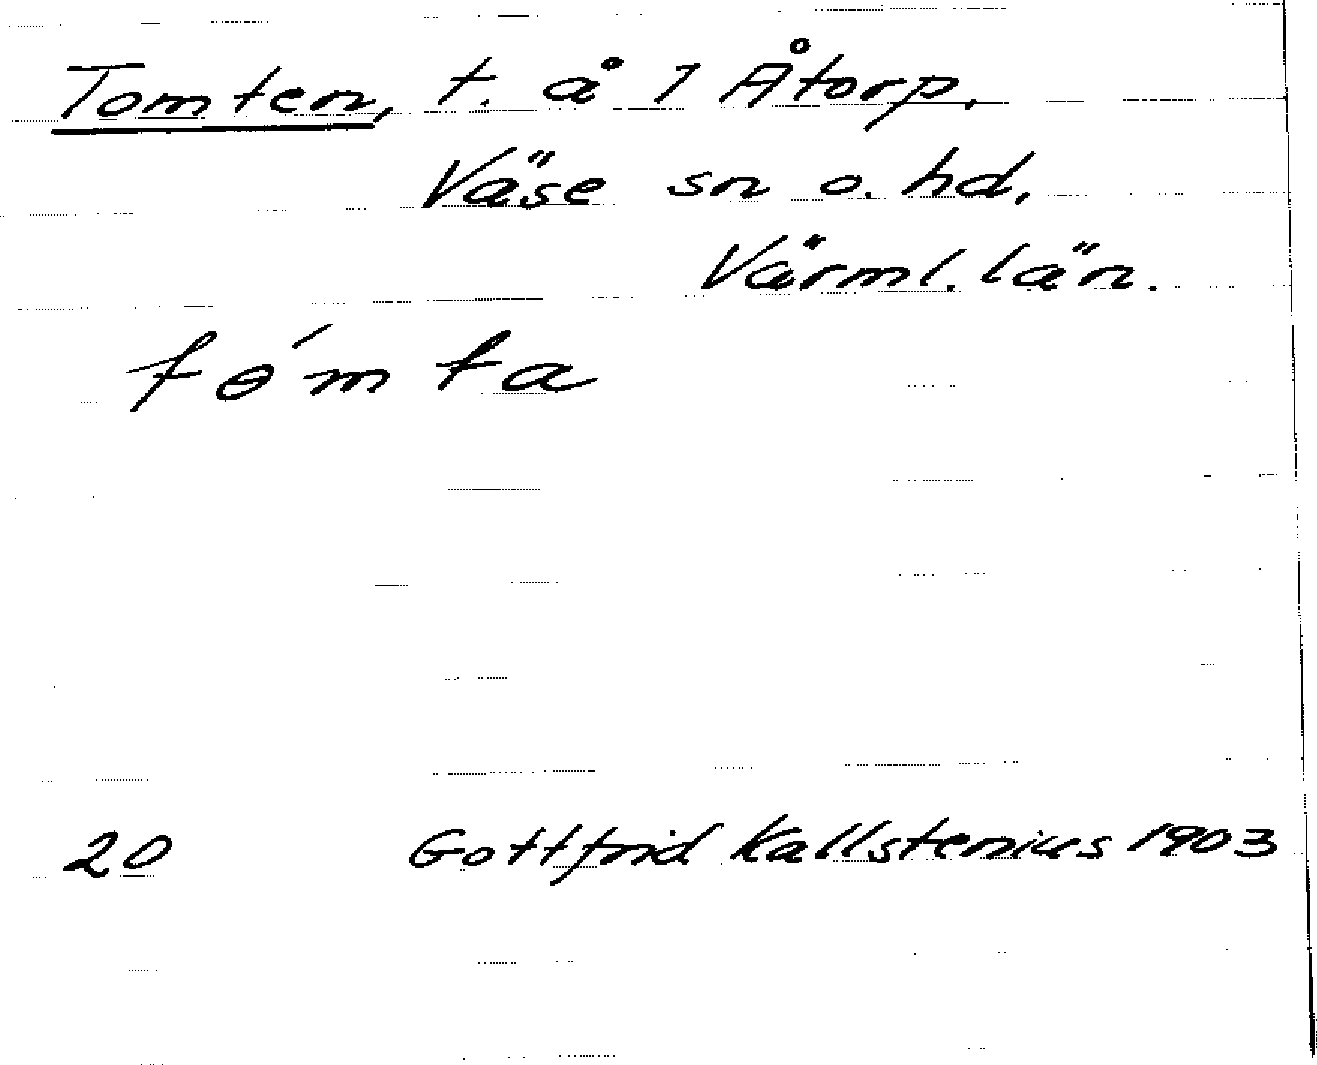 Tomten, t. å 1 Åtorp,
Väse sn o. hd,
Värml. län.
tɵ́mta
20 Gottfrid Kallstenius 1903